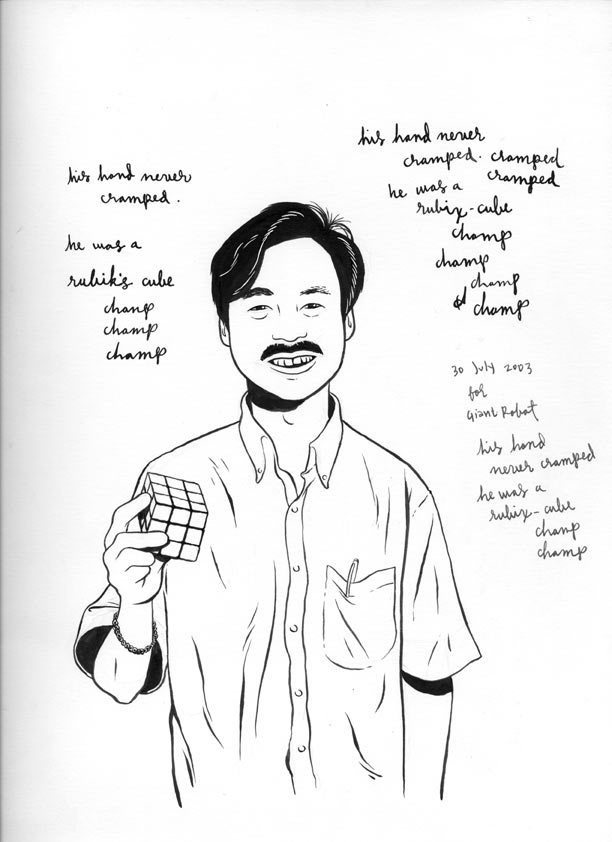 his hand never
cramped.
he was a
rubik's cube
champ
champ
champ
his hand never
cramped. cramped
cramped
he was a
rubix-cube
champ
champ
champ
champ
30 July 2003
for
Giant Robot
his hand
never cramped
he was a
rubix-cube
champ
champ